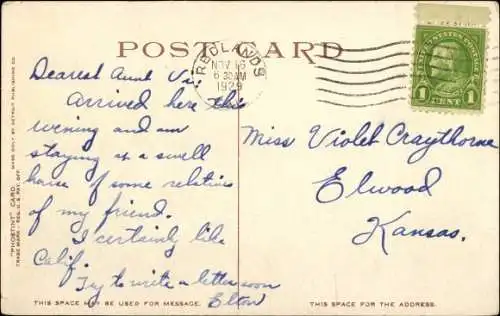 POST CARD
REDLANDS
NOV 16
6 30 AM
1929
UNITED STATES POSTAGE
1 CENT 1
"PHOSTINT" CARD
TRADE MARK - REG. U.S. PAT. OFF.
MADE ONLY BY DETROIT PUBLISHING CO.
Dearest Aunt Vi:
Arrived here this
evening and am
staying at a swell
house of some relatives
of my friend.
I certainly like
Calif.
Try to write a letter soon
Elton
Miss Violet Craythorne
Elwood
Kansas.
THIS SPACE MAY BE USED FOR MESSAGE.
THIS SPACE FOR THE ADDRESS.